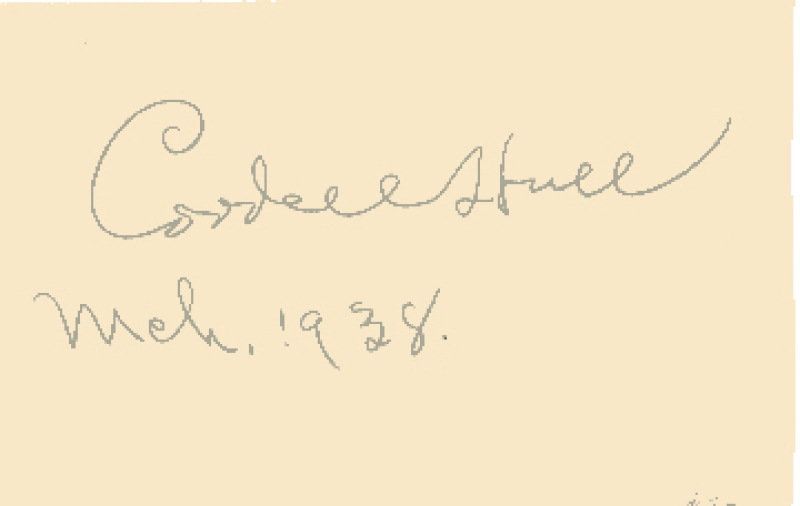 Cordell Hull
Mch. 1938.